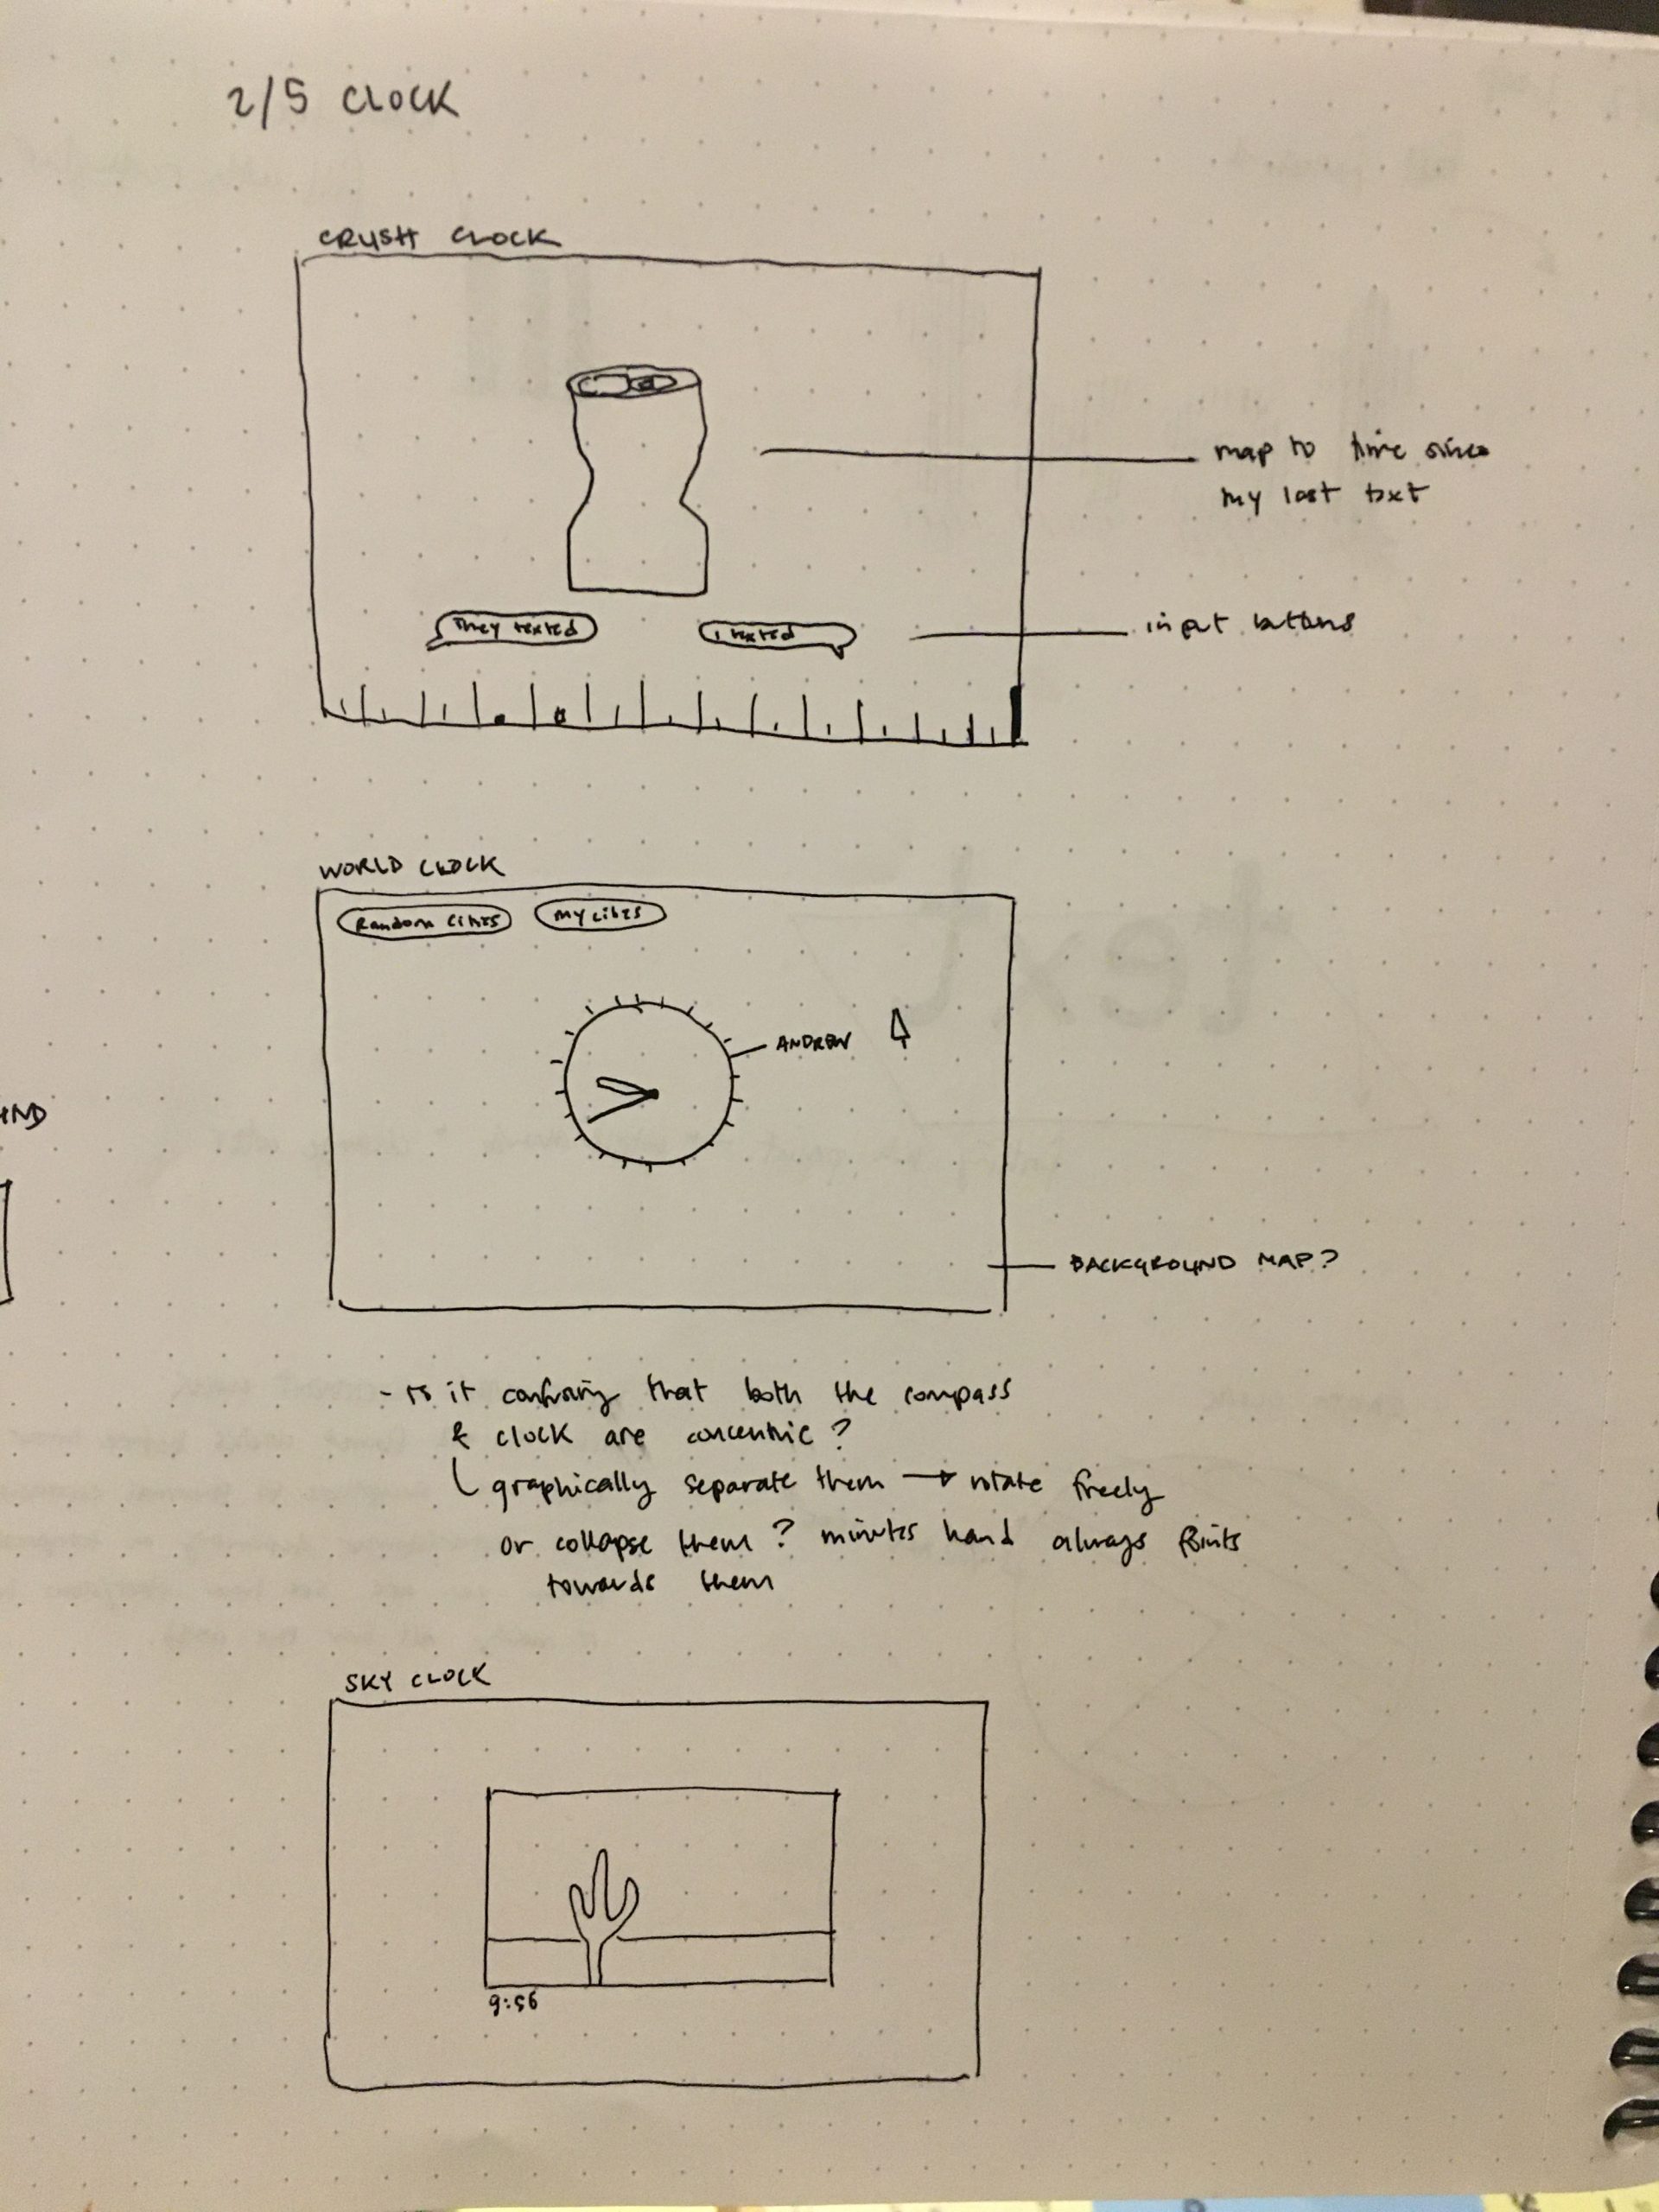 2/5 CLOCK
CRUSH CLOCK
map to time since
my last txt
They texted
I texted
input buttons
WORLD CLOCK
Random cities
My cities
ANDREW
UND
BACKGROUND MAP?
- Is it confusing that both the compass
& clock are concentric?
graphically separate them → rotate freely
or collapse them? minutes hand always points
towards them
SKY CLOCK
9:56